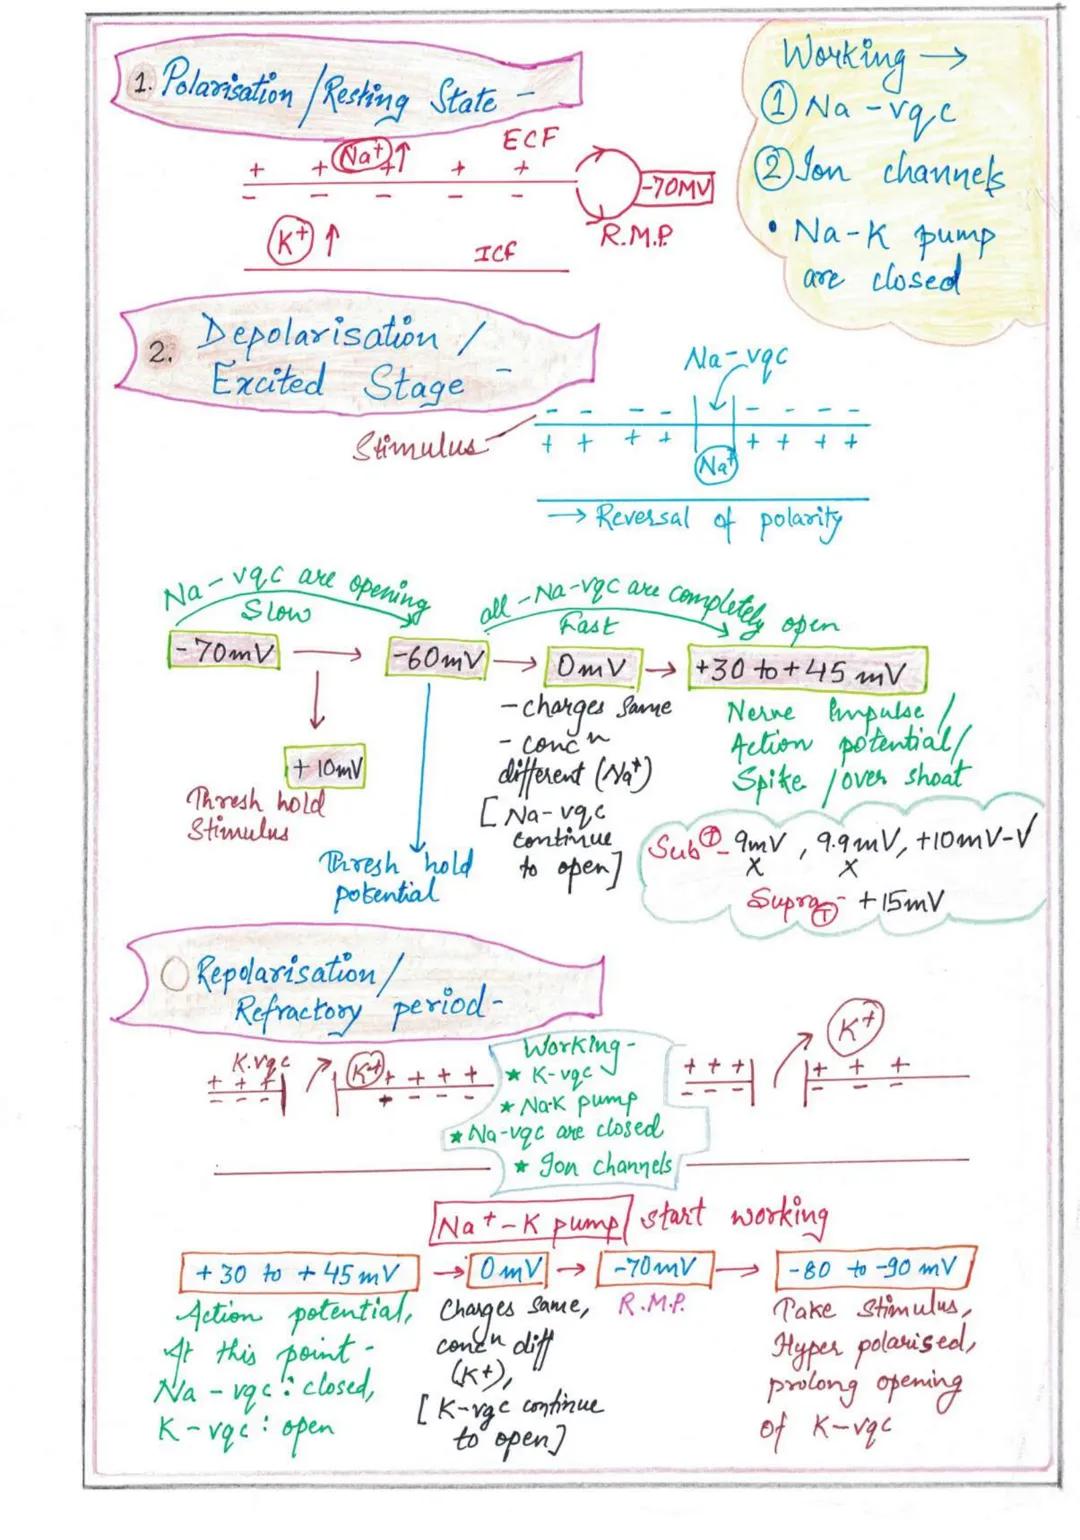 1. Polarisation / Resting State -
Working →
① Na - vgc
② Ion channels
• Na-K pump
are closed
ECF
+ + Na+ ↑ + + +
- - - - -
-70MV
R.M.P.
K+ ↑
ICF
2. Depolarisation /
Excited Stage -
Na-vgc
Stimulus
- - - - - - - -
+ + + + + + + +
Na+
→ Reversal of polarity
Na - vgc are opening
Slow
all - Na-vgc are completely open
Fast
-70mV → -60mV → 0mV → +30 to +45 mV
+ 10mV
Thresh hold
Stimulus
Thresh hold
potential
- charges same
- concn
different (Na+)
[Na-vgc
continue
to open]
Nerve Impulse /
Action potential /
Spike / over shoat
Sub Ⓣ - 9mV , 9.9mV, +10mV-V
x x
Supra Ⓣ - +15mV
Repolarisation /
Refractory period -
K.vgc
+ + +
- - -
K+ + + + +
Working -
* K-vgc
* Na-K pump
* Na-vgc are closed
* Ion channels
K+
+ + + + + +
- - - - - -
Na+-K pump start working
+30 to +45 mV → 0mV → -70mV → -80 to -90 mV
Action potential,
At this point -
Na - vgc : closed,
K - vgc : open
Charges same,
concn diff
(K+),
[K-vgc continue
to open]
R.M.P.
Take stimulus,
Hyper polarised,
prolong opening
of K-vgc